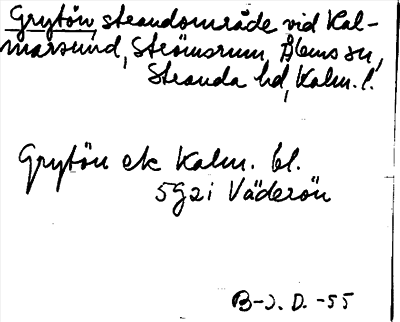 Grytön, strandområde vid Kal-
marsund, Strömsrum, Ålems sn,
Stranda hd, Kalm. l.
Grytön ek Kalm. bl.
5G2i Väderön
B-J. D. -55